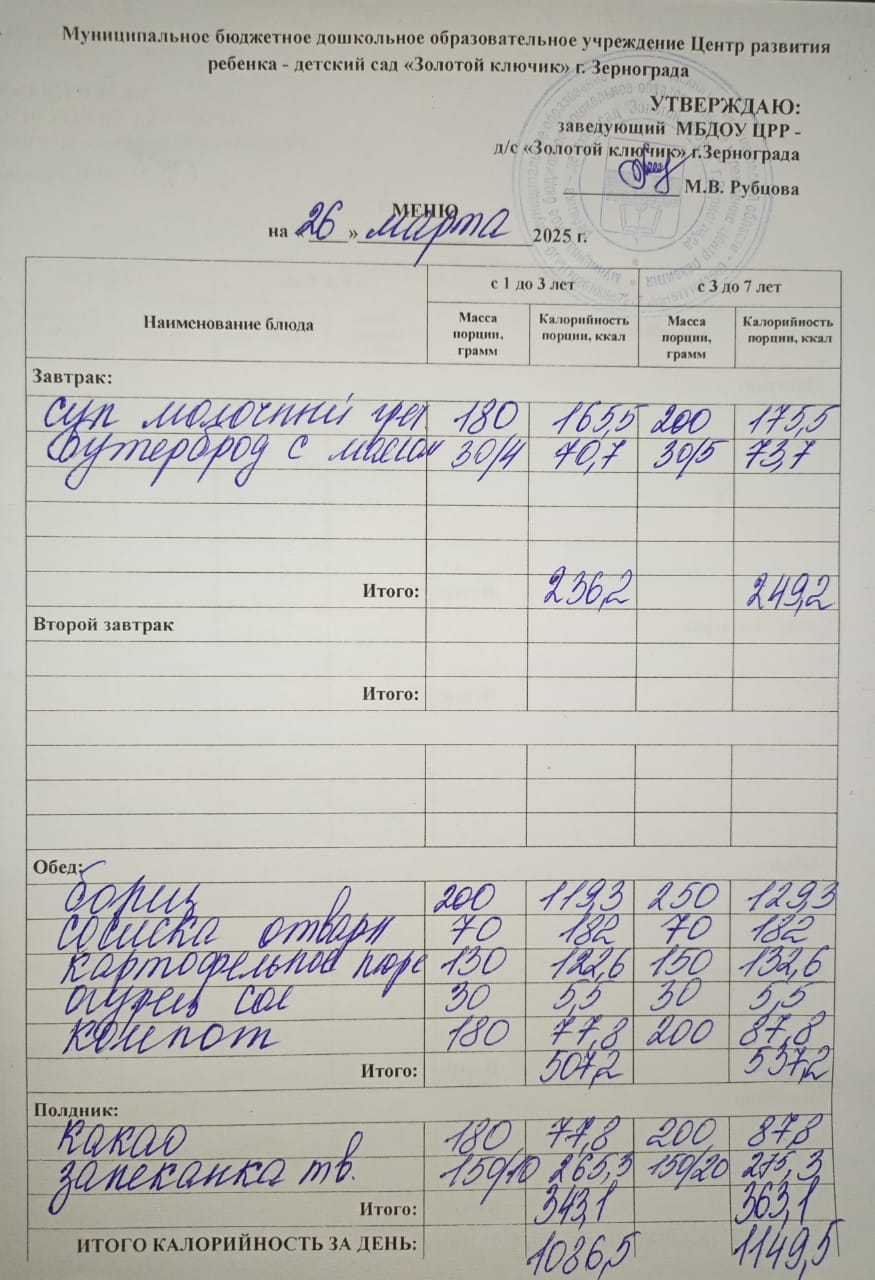 Муниципальное бюджетное дошкольное образовательное учреждение Центр развития
ребенка - детский сад «Золотой ключик» г. Зернограда
УТВЕРЖДАЮ:
заведующий МБДОУ ЦРР -
д/с «Золотой ключик» г.Зернограда
М.В. Рубцова
МЕНЮ
на «26» марта 2025 г.
Наименование блюда с 1 до 3 лет с 3 до 7 лет
Масса порции, грамм Калорийность порции, ккал Масса порции, грамм Калорийность порции, ккал
Завтрак:
суп молочный греч 180 165,5 200 175,5
бутерброд с маслом 30/4 70,7 30/5 73,7
Итого: 236,2 249,2
Второй завтрак
Итого:
Обед:
борщ 200 119,3 250 129,3
сосиска отварн 70 182 70 182
картофельное пюре 130 122,6 150 132,6
огурец сол 30 5,5 30 5,5
компот 180 77,8 200 87,8
Итого: 507,2 537,2
Полдник:
какао 180 77,8 200 87,8
запеканка тв. 150/10 265,3 150/20 275,3
Итого: 343,1 363,1
ИТОГО КАЛОРИЙНОСТЬ ЗА ДЕНЬ: 1086,5 1149,5